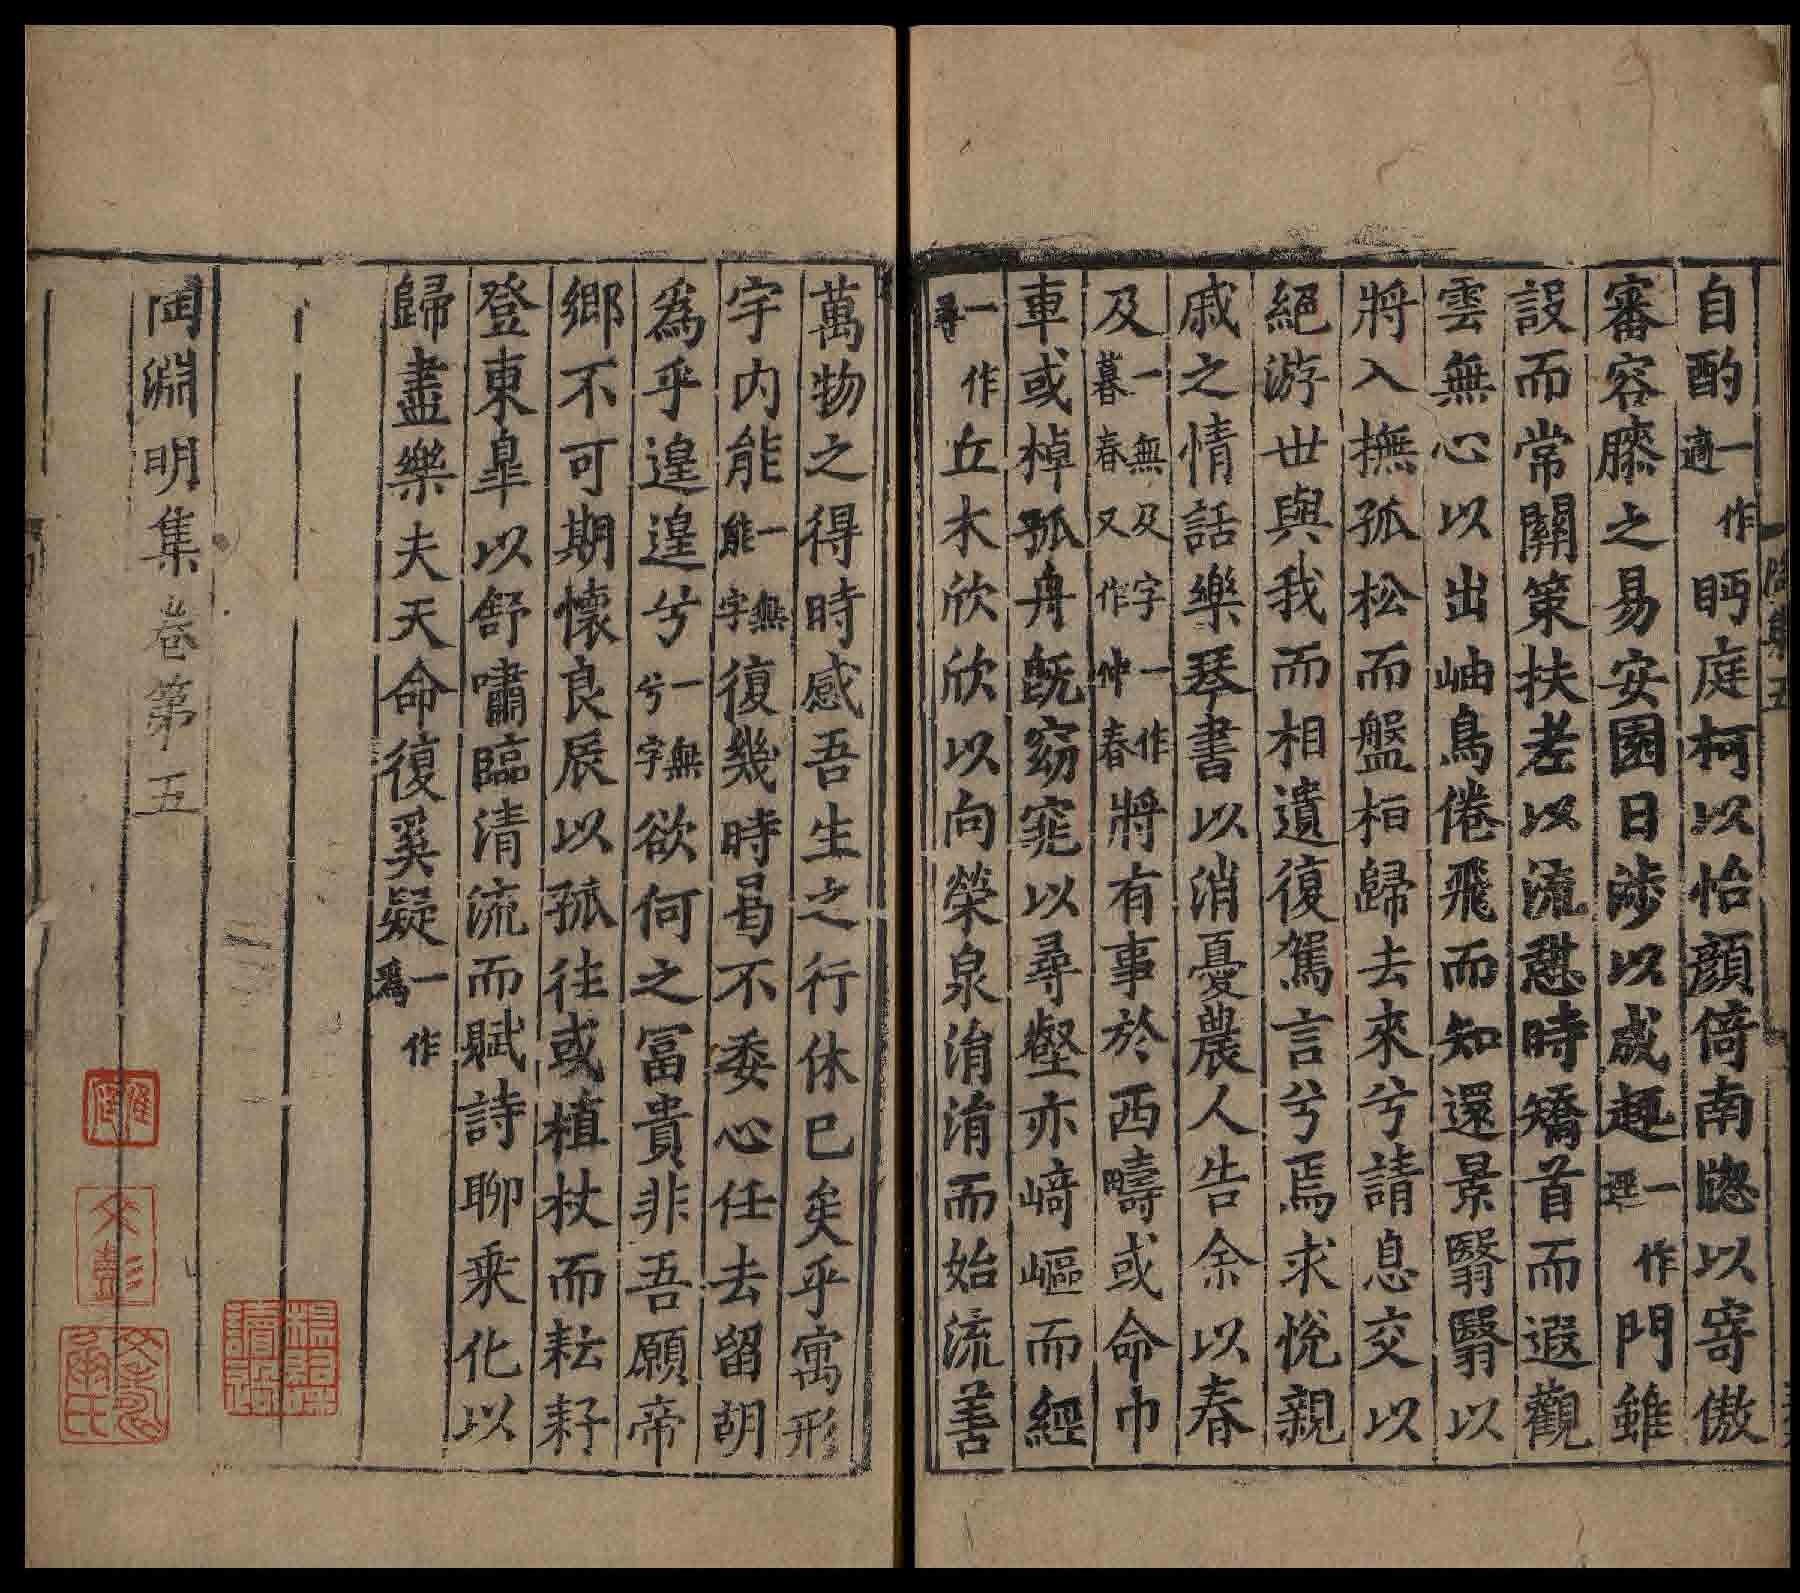 自酌一作適眄庭柯以怡顔倚南牎以寄傲
審容膝之易安園日涉以成趣一作逕門雖
設而常關策扶老以流憩時矯首而遐觀
雲無心以出岫鳥倦飛而知還景翳翳以
將入撫孤松而盤桓歸去來兮請息交以
絕游世與我而相遺復駕言兮焉求悅親
戚之情話樂琴書以消憂農人告余以春
及一無及字一作暮春又作仲春將有事於西疇或命巾
車或棹孤舟旣窈窕以尋壑亦崎嶇而經
一作尋丘木欣欣以向榮泉涓涓而始流善
萬物之得時感吾生之行休已矣乎寓形
宇内能一無能字復幾時曷不委心任去留胡
爲乎遑遑兮一無兮字欲何之富貴非吾願帝
鄉不可期懷良辰以孤往或植杖而耘耔
登東皐以舒嘯臨清流而賦詩聊乘化以
歸盡樂夫天命復奚疑一作爲
陶淵明集卷第五
陶集五
文彭